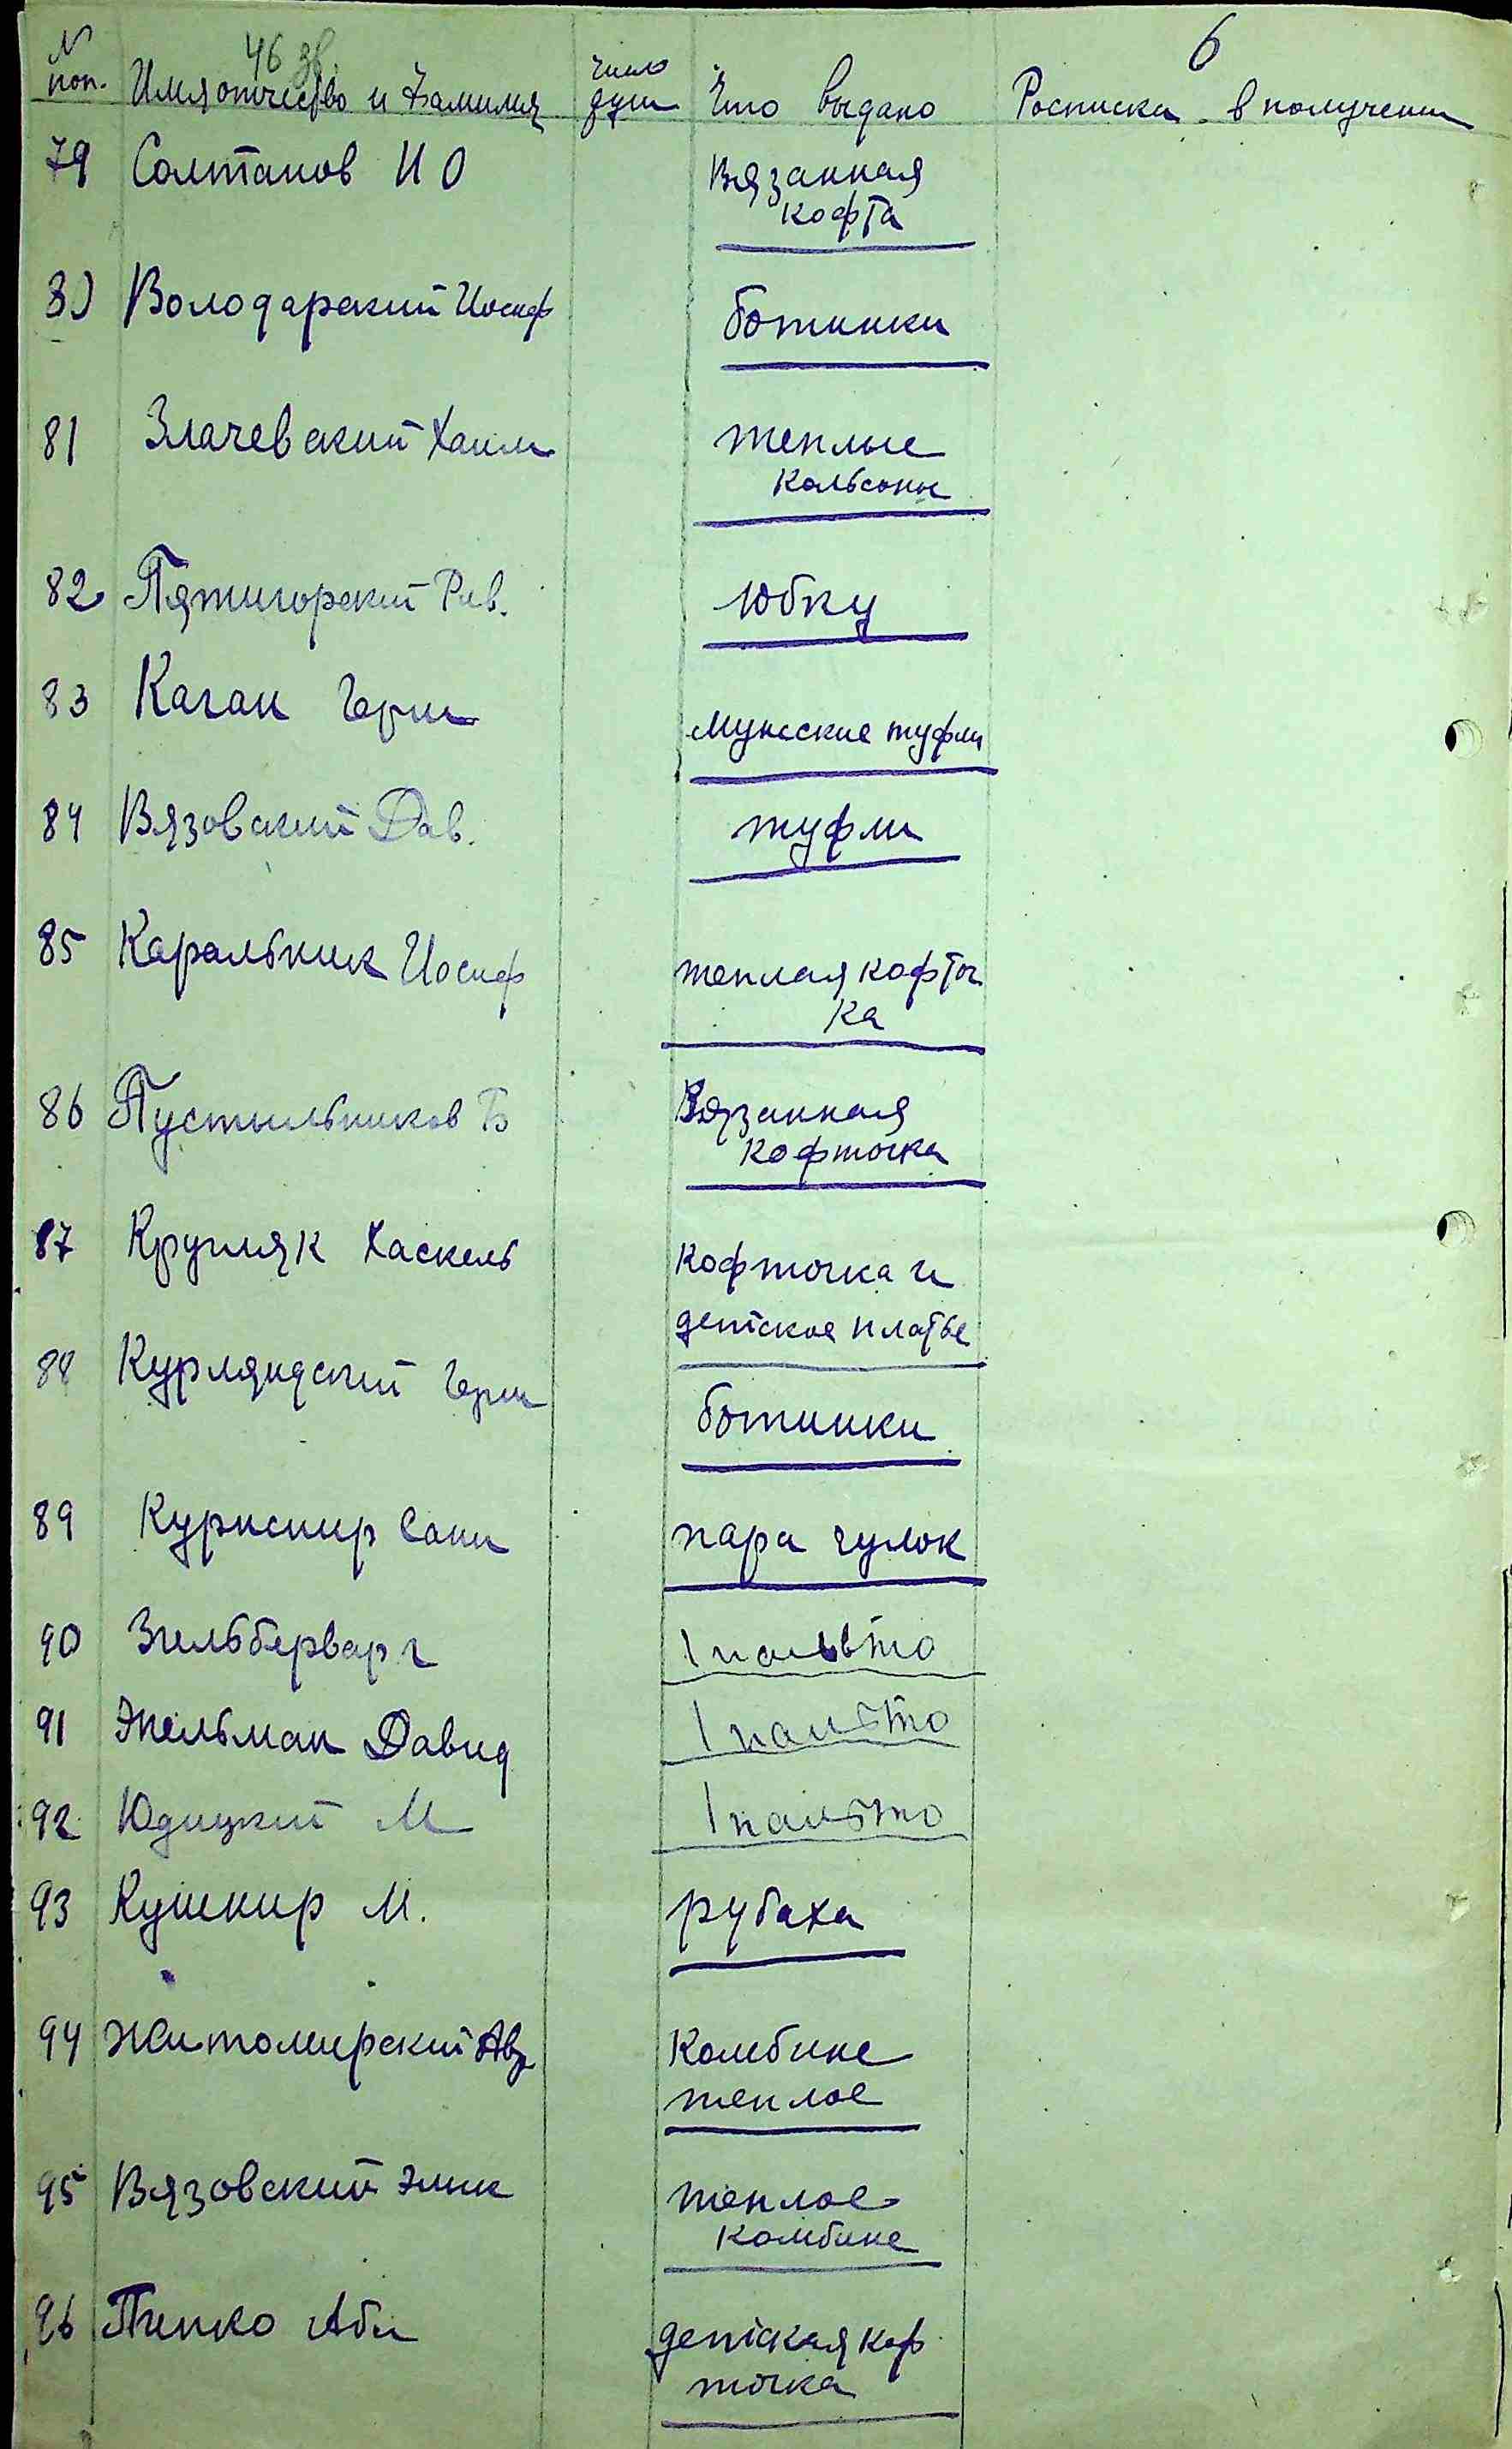 46 зв. 6
№ поп. Имя отчество и Фамилия число душ Что выдано Росписка в получении
79 Солтанов И О Вязанная
кофта
80 Володарский Иосиф ботинки
81 Злачевский Хаим теплые
кальсоны
82 Пятигорский Рив. Юбку
83 Каган Герш мужские туфли
84 Вязовский Дав. туфли
85 Каральник Иосиф теплая кофточ
ка
86 Пустыльников Б Вязанная
кофточка
87 Кругляк Хаскель Кофточка и
детское платье
88 Курляндский Герш ботинки
89 Сани пара чулок
90 Зильберварг 1 пальто
91 Экельман Давид 1 пальто
92 Юдицкий М 1 пальто
93 Кушнир М. рубаха
94 Житомирский Авр Комбине
теплое
95 Вязовский Элик теплое
комбине
96 Типко Аба детская коф
точка